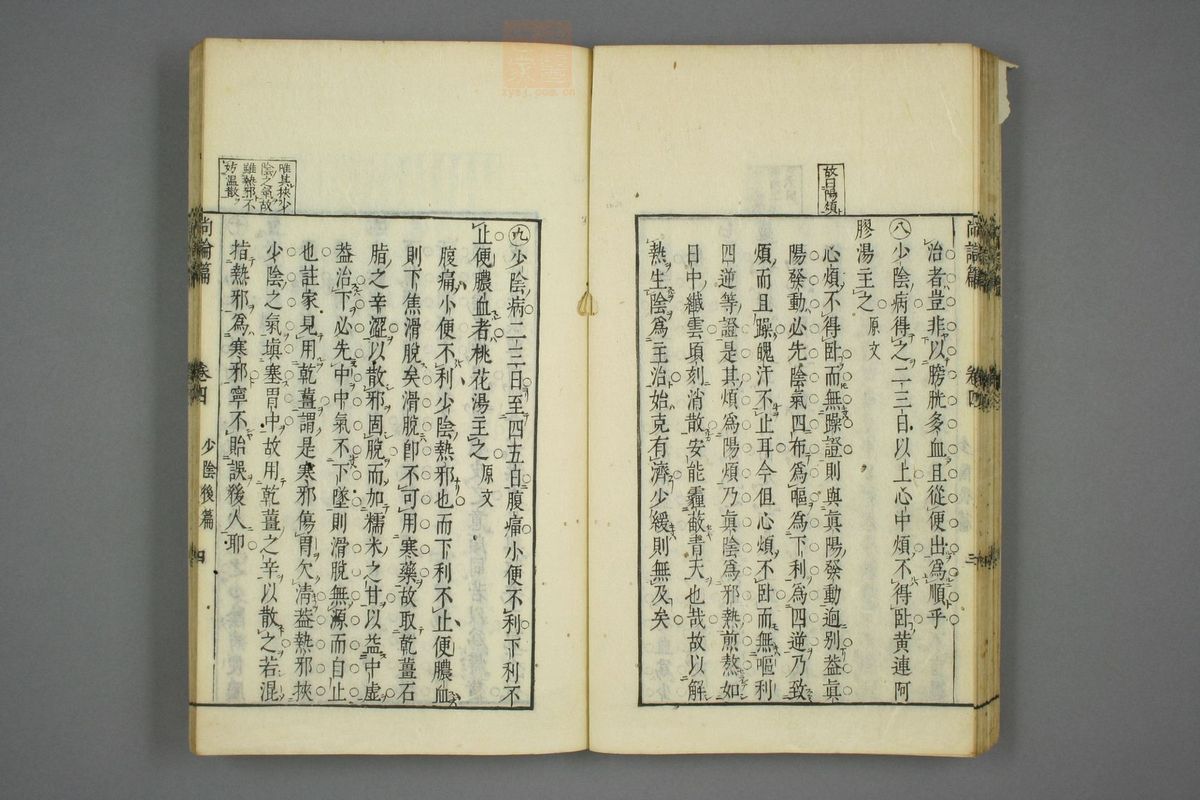 故曰陽煩
治者豈非以膀胱多血且從便出為順乎
㊇少陰病得之二三日以上心中煩不得臥黄連阿
膠湯主之 原文
心煩不得臥而無躁證則與眞陽發動迥别葢眞
陽發動必先陰氣四布為嘔為下利為四逆乃致
煩而且躁魄汗不止耳今但心煩不臥而無嘔利
四逆等證是其煩為陽煩乃眞陰為邪熱煎熬如
日中纖雲頃刻消散安能霾蔽青天也哉故以解
熱生陰為主治始克有濟少緩則無及矣
尚論篇 卷四 三
唯其挾少
陰之氣故
雖熱邪不
妨温散
㊈少陰病二三日至四五日腹痛小便不利下利不
止便膿血者桃花湯主之 原文
腹痛小便不利少陰熱邪也而下利不止便膿血
則下焦滑脫矣滑脫卽不可用寒藥故取乾薑石
脂之辛澀以散邪固脫而加糯米之甘以益中虛
葢治下必先中中氣不下墜則滑脫無源而自止
也註家見用乾薑謂是寒邪傷胃欠清葢熱邪挾
少陰之氣塡塞胃中故用乾薑之辛以散之若混
指熱邪為寒邪寧不貽誤後人耶
尚論篇 卷四 少陰後篇 四
zysj.com.cn